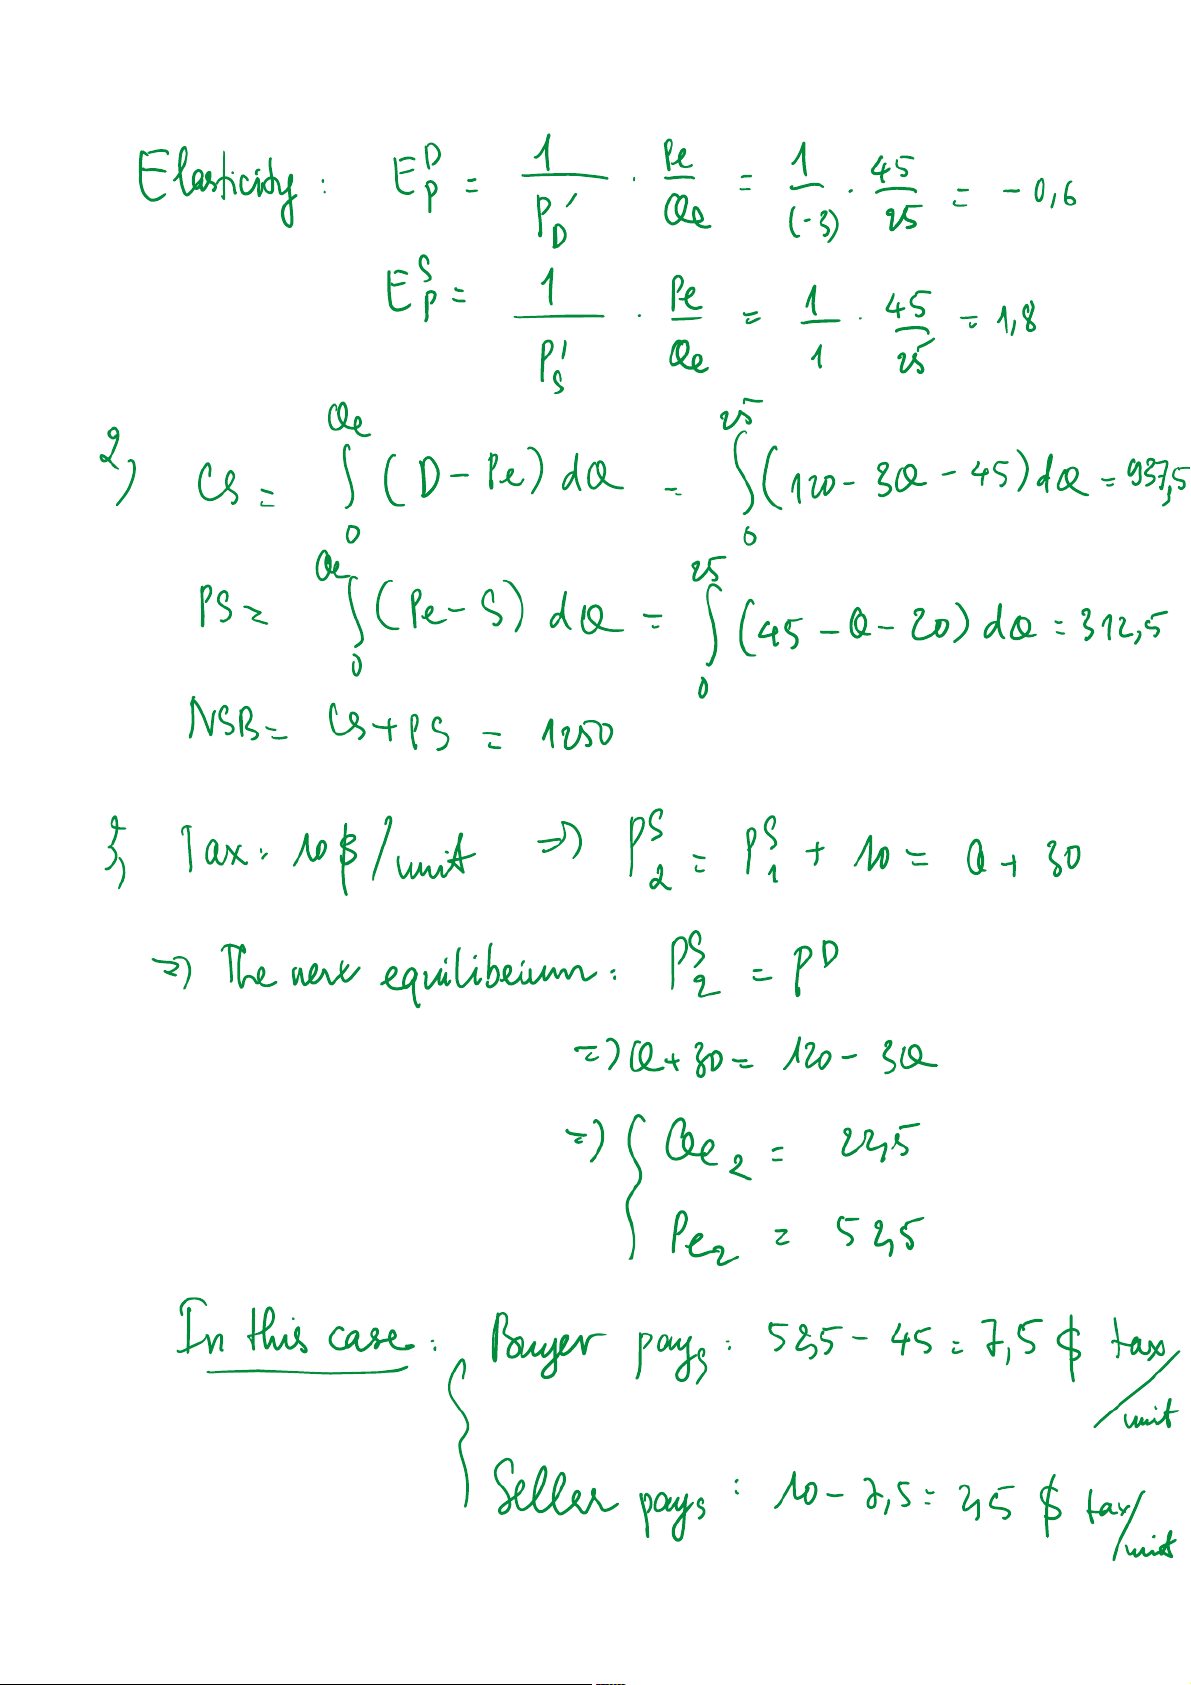 Elasticity: E_P^D = 1/P_D' · Pe/Qe = 1/(-3) · 45/25 = -0,6
E_P^S = 1/P_S' · Pe/Qe = 1/1 · 45/25 = 1,8
2) CS = ∫_0^Qe (D - Pe) dQ = ∫_0^25 (120 - 3Q - 45) dQ = 937,5
PS = ∫_0^Qe (Pe - S) dQ = ∫_0^25 (45 - Q - 20) dQ = 312,5
NSB = CS + PS = 1250
3) Tax: 10$/unit => P_2^S = P_1^S + 10 = Q + 30
=> The new equilibrium: P_2^S = P^D
=> Q + 30 = 120 - 3Q
=> { Qe_2 = 22,5
Pe_2 = 52,5
In this case: { Buyer pays: 52,5 - 45 = 7,5 $ tax/unit
Seller pays: 10 - 7,5 = 2,5 $ tax/unit